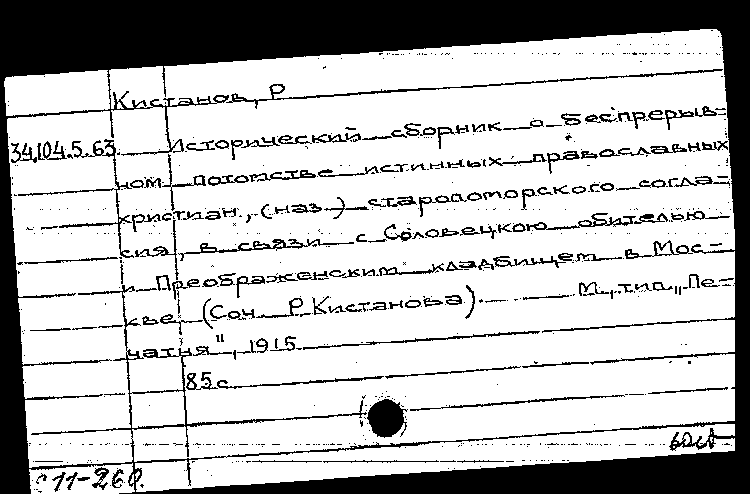 Кистанов, Р
34.104.5.63 Исторический сборник о беспрерыв-
ном потомстве истинных православных
христиан, (наз.) старопоморского согла-
сия, в связи с Соловецкою обителью
и Преображенским кладбищем в Мос-
кве. (Соч. Р. Кистанова). М., тип. „Пе-
чатня", 1915
85 с.
11-260.